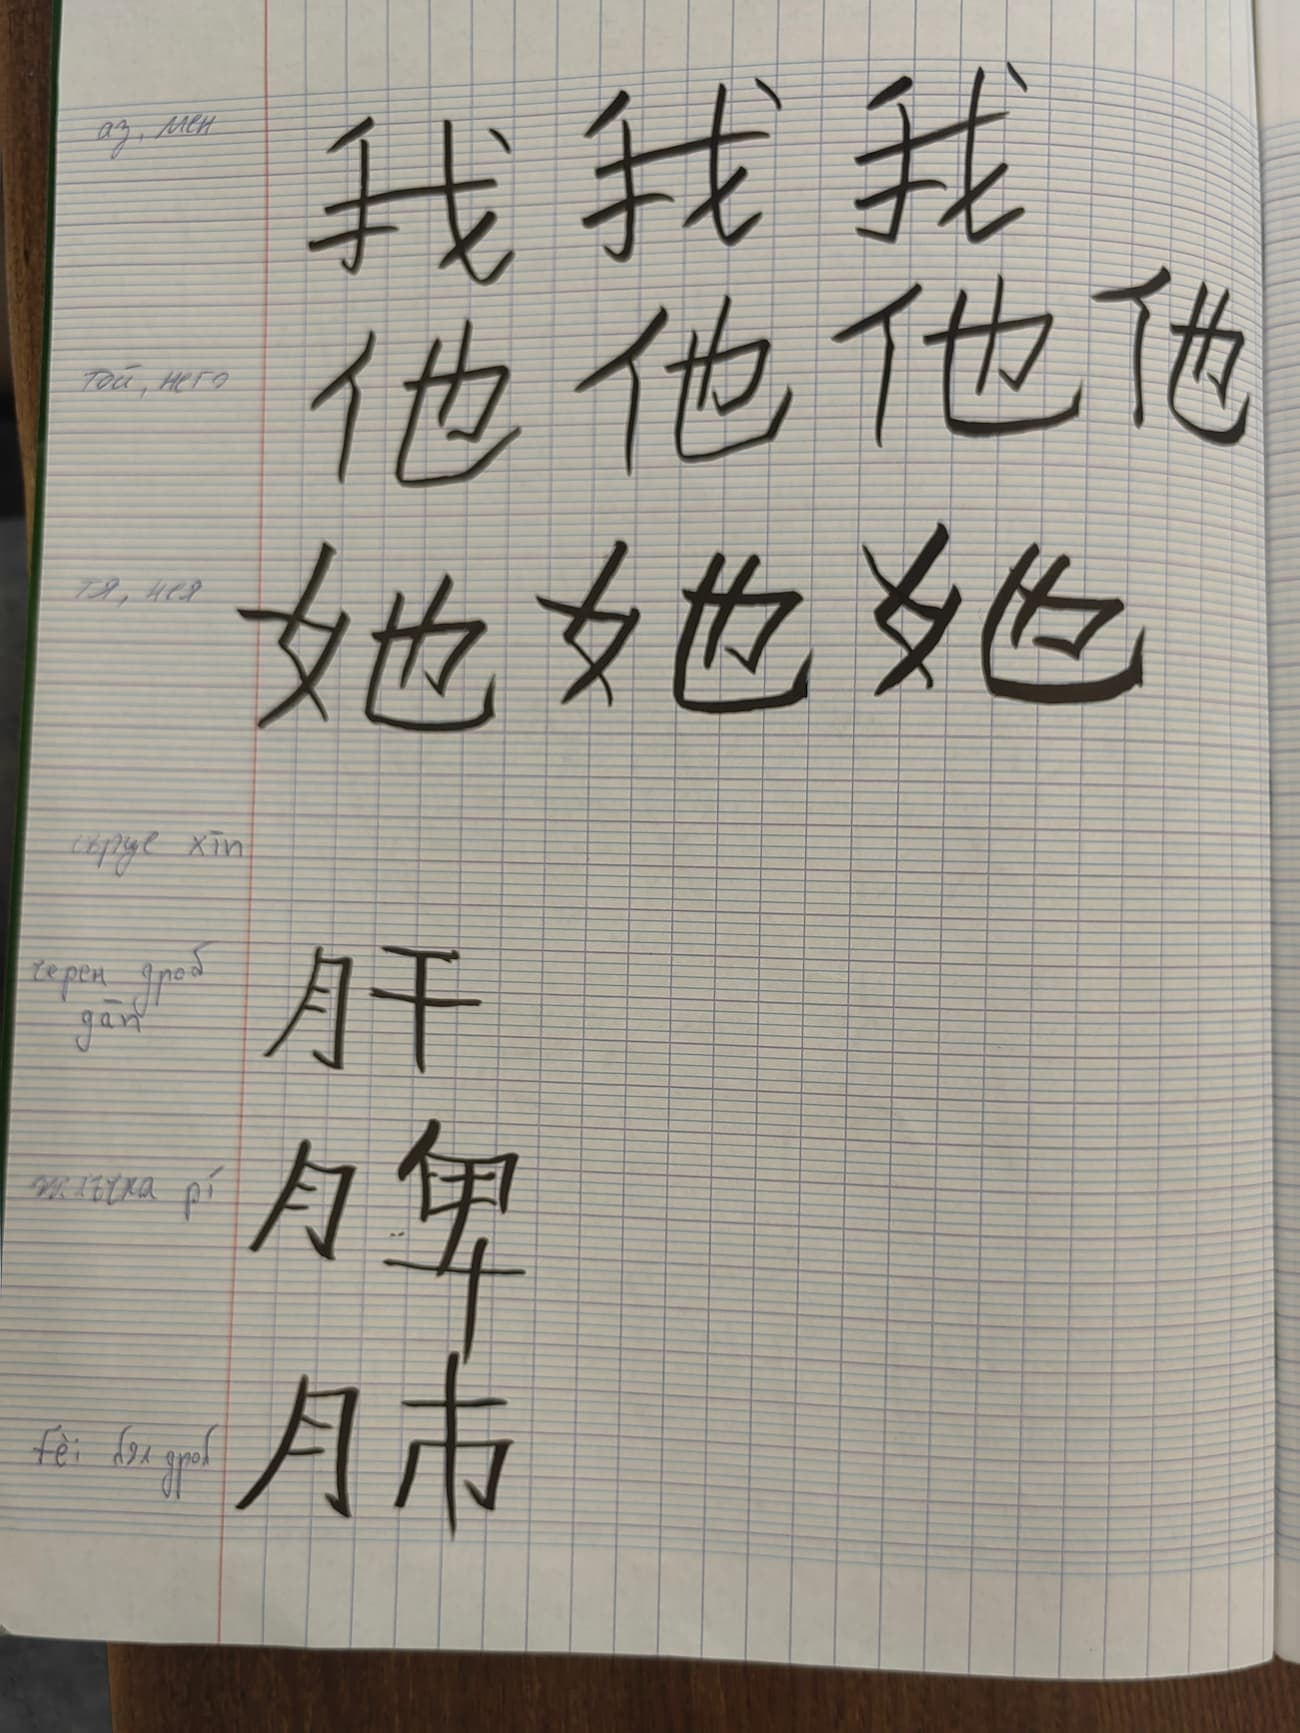 аз, мен 我 我 我
той, него 他 他 他 他
тя, нея 她 她 她
сърце xīn
черен дроб 肝
gān
жлъчка pí 脾
fèi бял дроб 肺